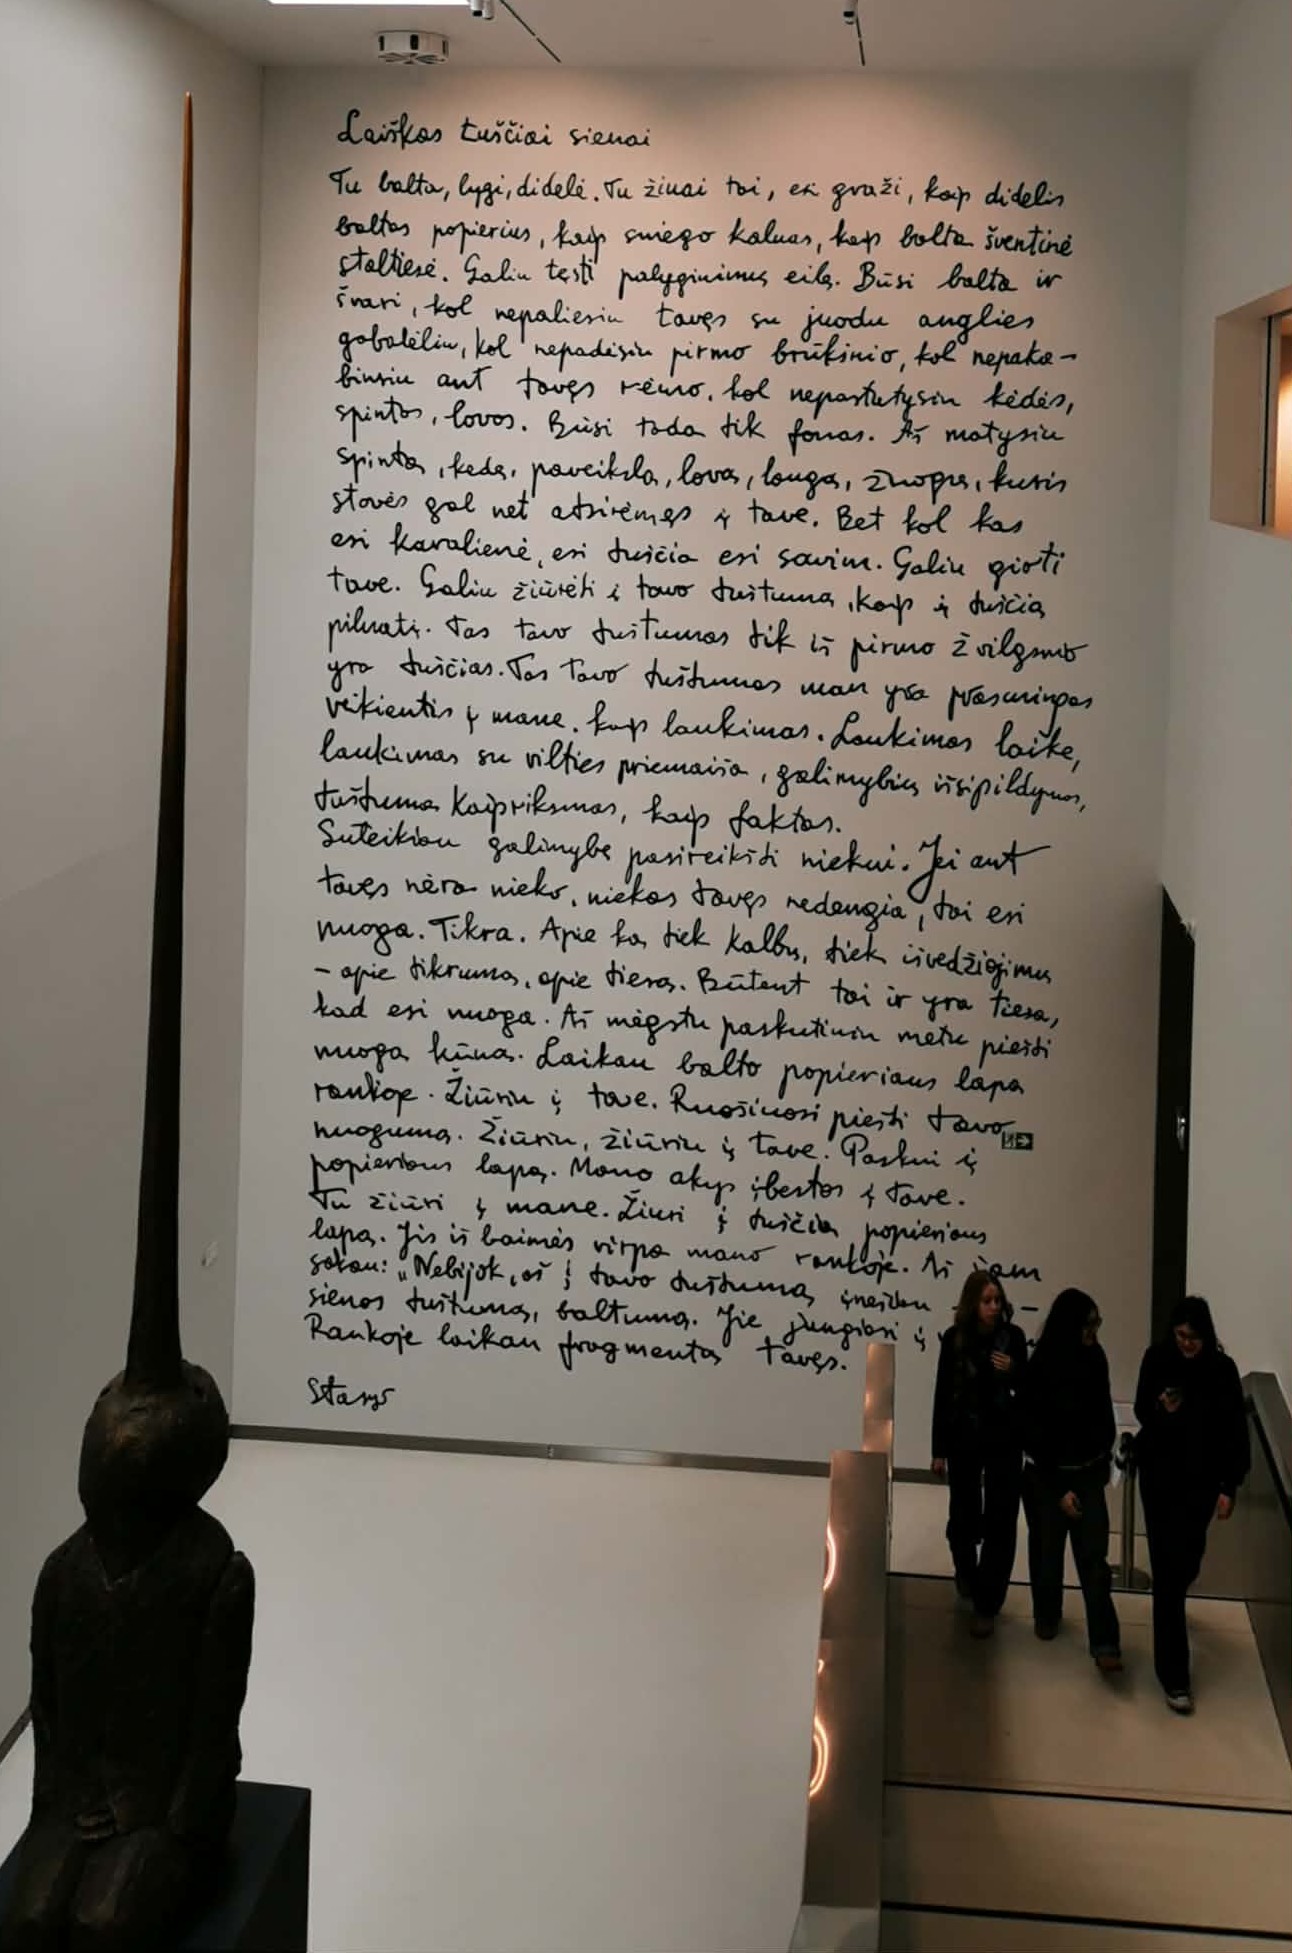 Laiškas tuščiai sienai
Tu balta, lygi, didelė. Tu žinai tai, esi graži, kaip didelis
baltas popierius, kaip sniego kalnas, kaip balta šventinė
staltiesė. Galiu tęsti palyginimų eilę. Būsi balta ir
švari, kol nepaliesiu tavęs su juodu anglies
gabalėliu, kol nepadėsiu pirmo brūkšnio, kol nepaka-
binsiu ant tavęs rėmo, kol nepastatysiu kėdės,
spintos, lovos. Būsi tada tik fonas. Aš matysiu
spintą, kėdę, paveikslą, lovą, langą, žmogų, kuris
stovės gal net atsirėmęs į tave. Bet kol kas
esi karalienė, esi tuščia esi savim. Galiu girti
tave. Galiu žiūrėti į tavo tuštumą, kaip į tuščią
pilnatį. Tas tavo tuštumas tik iš pirmo žvilgsnio
yra tuščias. Tas tavo tuštumas man yra prasmingas
veikiantis į mane, kaip laukimas. Laukimas laike,
laukimas su vilties priemaiša, galimybių išsipildymas,
tuštuma kaip riksmas, kaip faktas.
Suteikiau galimybę pasireikšti niekui. Jei ant
tavęs nėra nieko, niekas tavęs nedengia, tai esi
nuoga. Tikra. Apie ką tiek kalbų, tiek išvedžiojimų
- apie tikrumą, apie tiesą. Būtent tai ir yra tiesa,
kad esi nuoga. Aš mėgstu paskutiniu metu piešti
nuogą kūną. Laikau balto popieriaus lapą
rankoje. Žiūriu į tave. Ruošiuosi piešti tavo
nuogumą. Žiūriu, žiūriu į tave. Paskui į
popieriaus lapą. Mano akys įbestos į tave.
Tu žiūri į mane. Žiūri į tuščią popieriaus
lapą. Jis iš baimės virpa mano rankoje. Aš jam
sakau: „Nebijok, aš į tavo tuštumą įnešiu
sienos tuštumą, baltumą. Jie jungiasi į
Rankoje laikau fragmentą tavęs.
Stasys